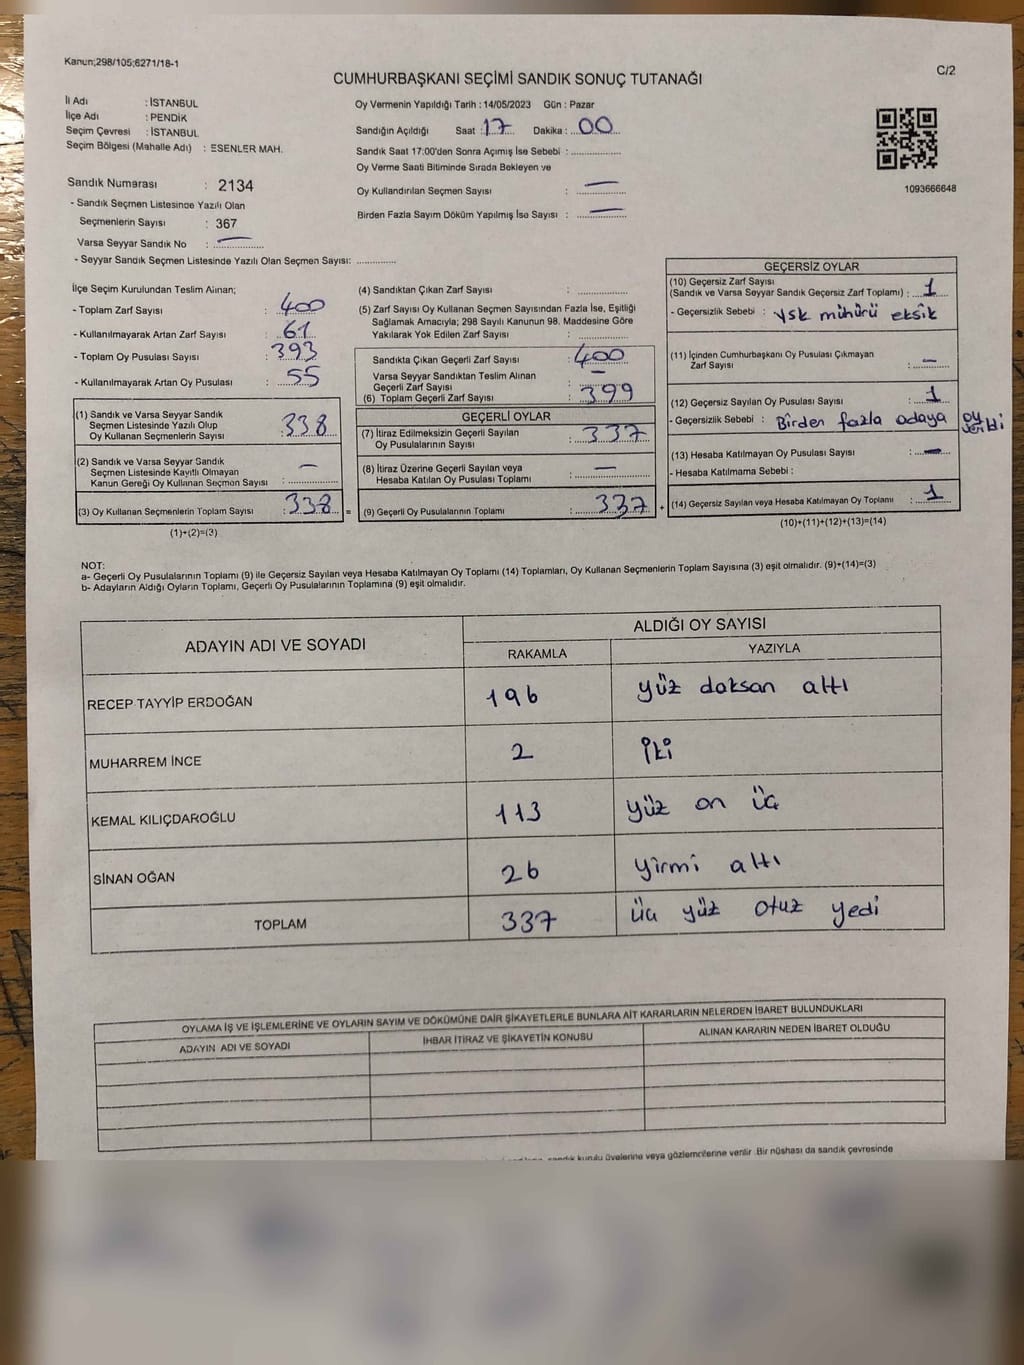 Kanun;298/105;6271/18-1
C/2
CUMHURBAŞKANI SEÇİMİ SANDIK SONUÇ TUTANAĞI
İl Adı : İSTANBUL
İlçe Adı : PENDİK
Seçim Çevresi : İSTANBUL
Seçim Bölgesi (Mahalle Adı) : ESENLER MAH.
Oy Vermenin Yapıldığı Tarih : 14/05/2023 Gün : Pazar
Sandığın Açıldığı Saat : 17 Dakika : 00
Sandık Saat 17:00'den Sonra Açımış İse Sebebi :
Oy Verme Saati Bitiminde Sırada Bekleyen ve
Oy Kullandırılan Seçmen Sayısı : —
Birden Fazla Sayım Döküm Yapılmış İse Sayısı : —
1093666648
Sandık Numarası : 2134
- Sandık Seçmen Listesinde Yazılı Olan
Seçmenlerin Sayısı : 367
Varsa Seyyar Sandık No : —
- Seyyar Sandık Seçmen Listesinde Yazılı Olan Seçmen Sayısı:
İlçe Seçim Kurulundan Teslim Alınan;
- Toplam Zarf Sayısı : 400
- Kullanılmayarak Artan Zarf Sayısı : 61
- Toplam Oy Pusulası Sayısı : 393
- Kullanılmayarak Artan Oy Pusulası : 55
(1) Sandık ve Varsa Seyyar Sandık
Seçmen Listesinde Yazılı Olup
Oy Kullanan Seçmenlerin Sayısı : 338
(2) Sandık ve Varsa Seyyar Sandık
Seçmen Listesinde Kayıtlı Olmayan
Kanun Gereği Oy Kullanan Seçmen Sayısı : —
(3) Oy Kullanan Seçmenlerin Toplam Sayısı : 338 =
(1)+(2)=(3)
(4) Sandıktan Çıkan Zarf Sayısı :
(5) Zarf Sayısı Oy Kullanan Seçmen Sayısından Fazla İse, Eşitliği
Sağlamak Amacıyla; 298 Sayılı Kanunun 98. Maddesine Göre
Yakılarak Yok Edilen Zarf Sayısı :
Sandıkta Çıkan Geçerli Zarf Sayısı : 400
Varsa Seyyar Sandıktan Teslim Alınan
Geçerli Zarf Sayısı : —
(6) Toplam Geçerli Zarf Sayısı : 399
GEÇERLİ OYLAR
(7) İtiraz Edilmeksizin Geçerli Sayılan
Oy Pusulalarının Sayısı : 337
(8) İtiraz Üzerine Geçerli Sayılan veya
Hesaba Katılan Oy Pusulası Toplamı : —
(9) Geçerli Oy Pusulalarının Toplamı : 337 +
GEÇERSİZ OYLAR
(10) Geçersiz Zarf Sayısı
(Sandık ve Varsa Seyyar Sandık Geçersiz Zarf Toplamı) : 1
- Geçersizlik Sebebi : ysk mühürü eksik
(11) İçinden Cumhurbaşkanı Oy Pusulası Çıkmayan
Zarf Sayısı : —
(12) Geçersiz Sayılan Oy Pusulası Sayısı : 1
- Geçersizlik Sebebi : Birden fazla adaya oy
(13) Hesaba Katılmayan Oy Pusulası Sayısı : —
- Hesaba Katılmama Sebebi :
(14) Geçersiz Sayılan veya Hesaba Katılmayan Oy Toplamı : 1
(10)+(11)+(12)+(13)=(14)
NOT:
a- Geçerli Oy Pusulalarının Toplamı (9) ile Geçersiz Sayılan veya Hesaba Katılmayan Oy Toplamı (14) Toplamları, Oy Kullanan Seçmenlerin Toplam Sayısına (3) eşit olmalıdır. (9)+(14)=(3)
b- Adayların Aldığı Oyların Toplamı, Geçerli Oy Pusulalarının Toplamına (9) eşit olmalıdır.
ADAYIN ADI VE SOYADI
ALDIĞI OY SAYISI
RAKAMLA YAZIYLA
RECEP TAYYİP ERDOĞAN 196 yüz doksan altı
MUHARREM İNCE 2 iki
KEMAL KILIÇDAROĞLU 113 yüz on üç
SİNAN OĞAN 26 yirmi altı
TOPLAM 337 üç yüz otuz yedi
OYLAMA İŞ VE İŞLEMLERİNE VE OYLARIN SAYIM VE DÖKÜMÜNE DAİR ŞİKAYETLERLE BUNLARA AİT KARARLARIN NELERDEN İBARET BULUNDUKLARI
ADAYIN ADI VE SOYADI İHBAR İTİRAZ VE ŞİKAYETİN KONUSU ALINAN KARARIN NEDEN İBARET OLDUĞU
sandık kurulu üyelerine veya gözlemcilerine verilir. Bir nüshası da sandık çevresinde